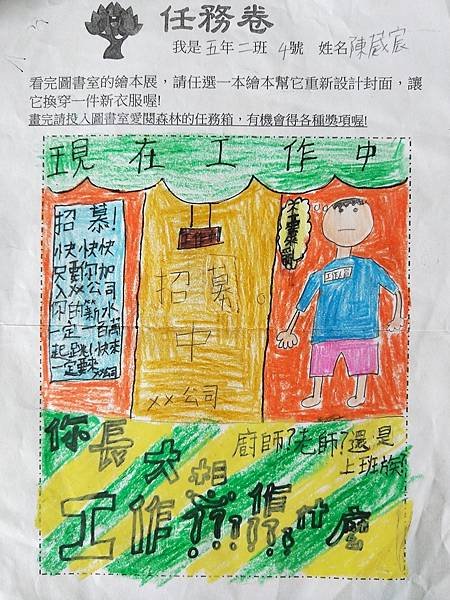 任務卷
我是五年二班 4號 姓名陳葳宸
看完圖書室的繪本展，請任選一本繪本幫它重新設計封面，讓
它換穿一件新衣服喔!
畫完請投入圖書室愛閱森林的任務箱，有機會得各種獎項喔!
現在工作中
招募!
快快快
只要你加
入XX公司
你的薪水
一定一百萬
起跳!快來
一定要來
XX公司
工作中
招募中。
XX公司
不要亂
工作人員
廚師?老師?還是
上班族?
你長大想
工作當作什麼